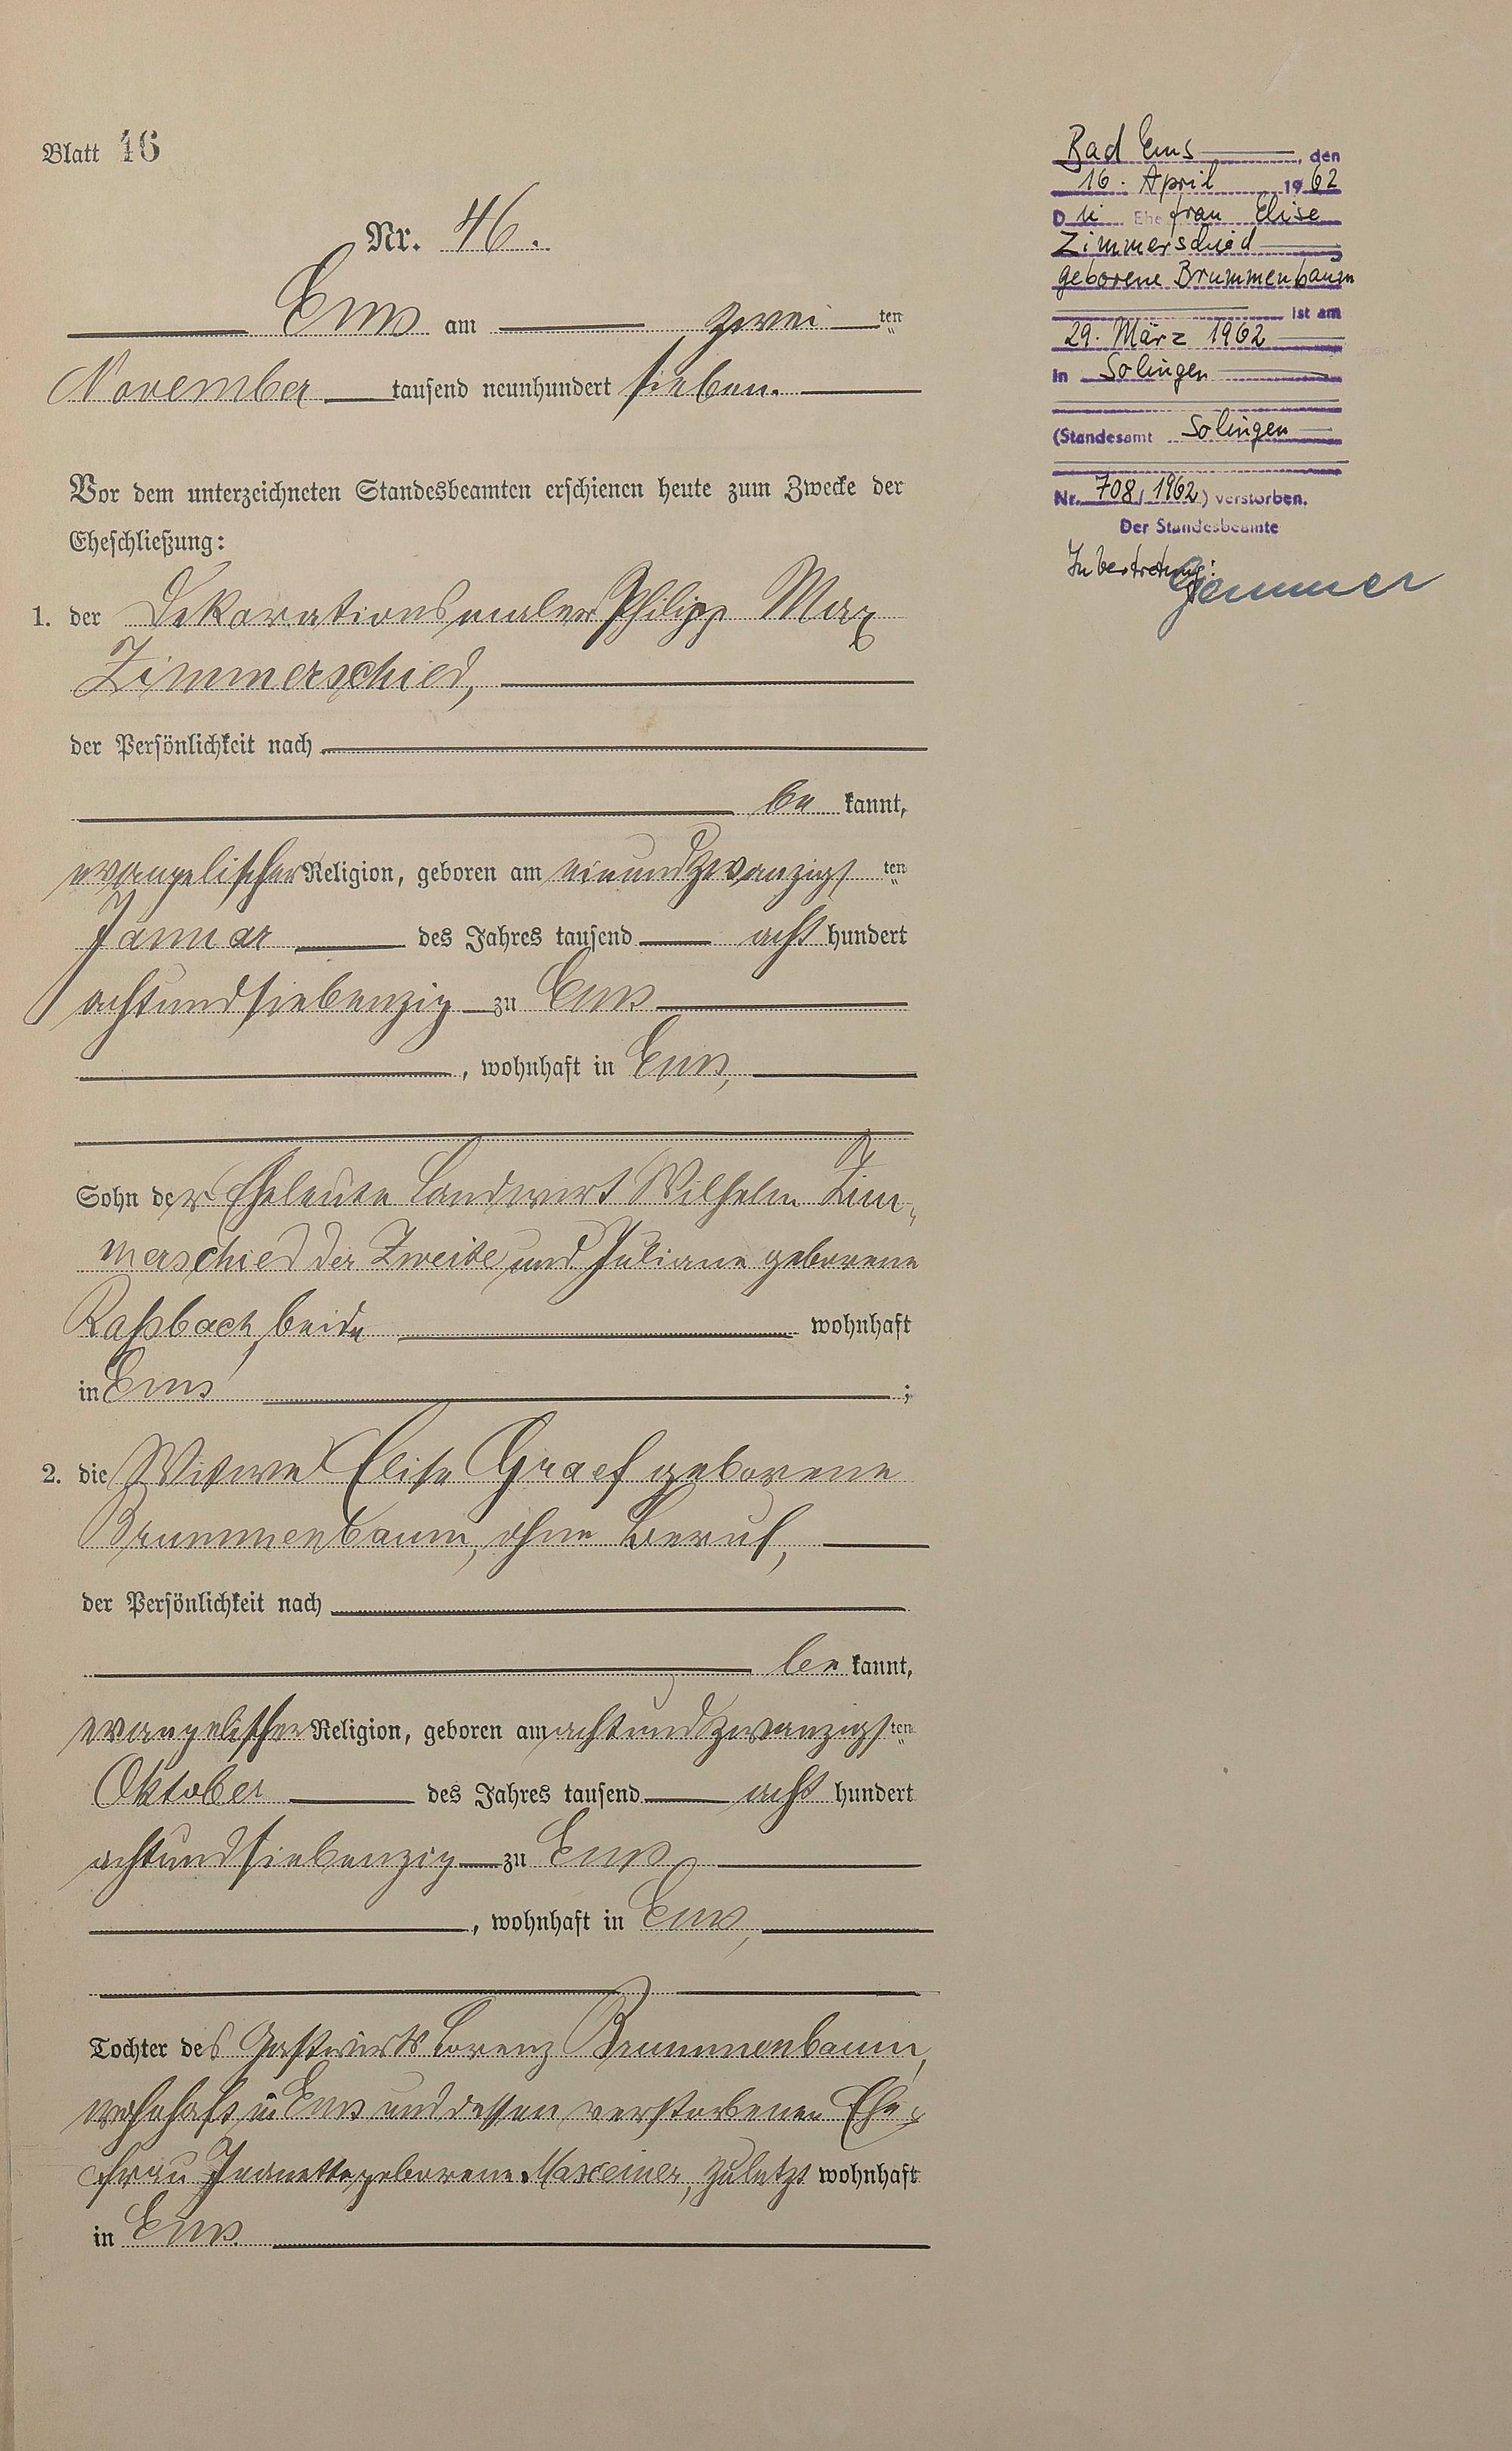 Blatt 46
Nr. 46.
Ems am zwei ten
November tausend neunhundert sieben.
Vor dem unterzeichneten Standesbeamten erschienen heute zum Zwecke der
Eheschließung:
1. der Dekorationsmaler Philipp Max
Zimmerschied,
der Persönlichkeit nach
be kannt,
evangelischer Religion, geboren am einundzwanzigs ten
Januar des Jahres tausend acht hundert
achtundsiebenzig zu Ems
, wohnhaft in Ems,
Sohn der Eheleute Landwirt Wilhelm Zim-
merschied der Zweite und Juliane geborene
Raßbach, beide wohnhaft
in Ems ;
2. die Witwe Elise Graef geborene
Brummenbaum, ohne Beruf,
der Persönlichkeit nach
be kannt,
evangelischer Religion, geboren am achtundzwanzigs ten
Oktober des Jahres tausend acht hundert
achtundsiebenzig zu Ems
, wohnhaft in Ems,
Tochter des Gastwirts Lorenz Brummenbaum,
wohnhaft in Ems und dessen verstorbenen Ehe-
frau Jeanette geborene Maxeiner, zuletzt wohnhaft
in Ems.
Bad Ems, den
16. April 1962
Die Ehefrau Elise
Zimmerschied
geborene Brummenbaum
ist am
29. März 1962
in Solingen
(Standesamt Solingen
Nr. 708/1962) verstorben.
Der Standesbeamte
In Vertretung: